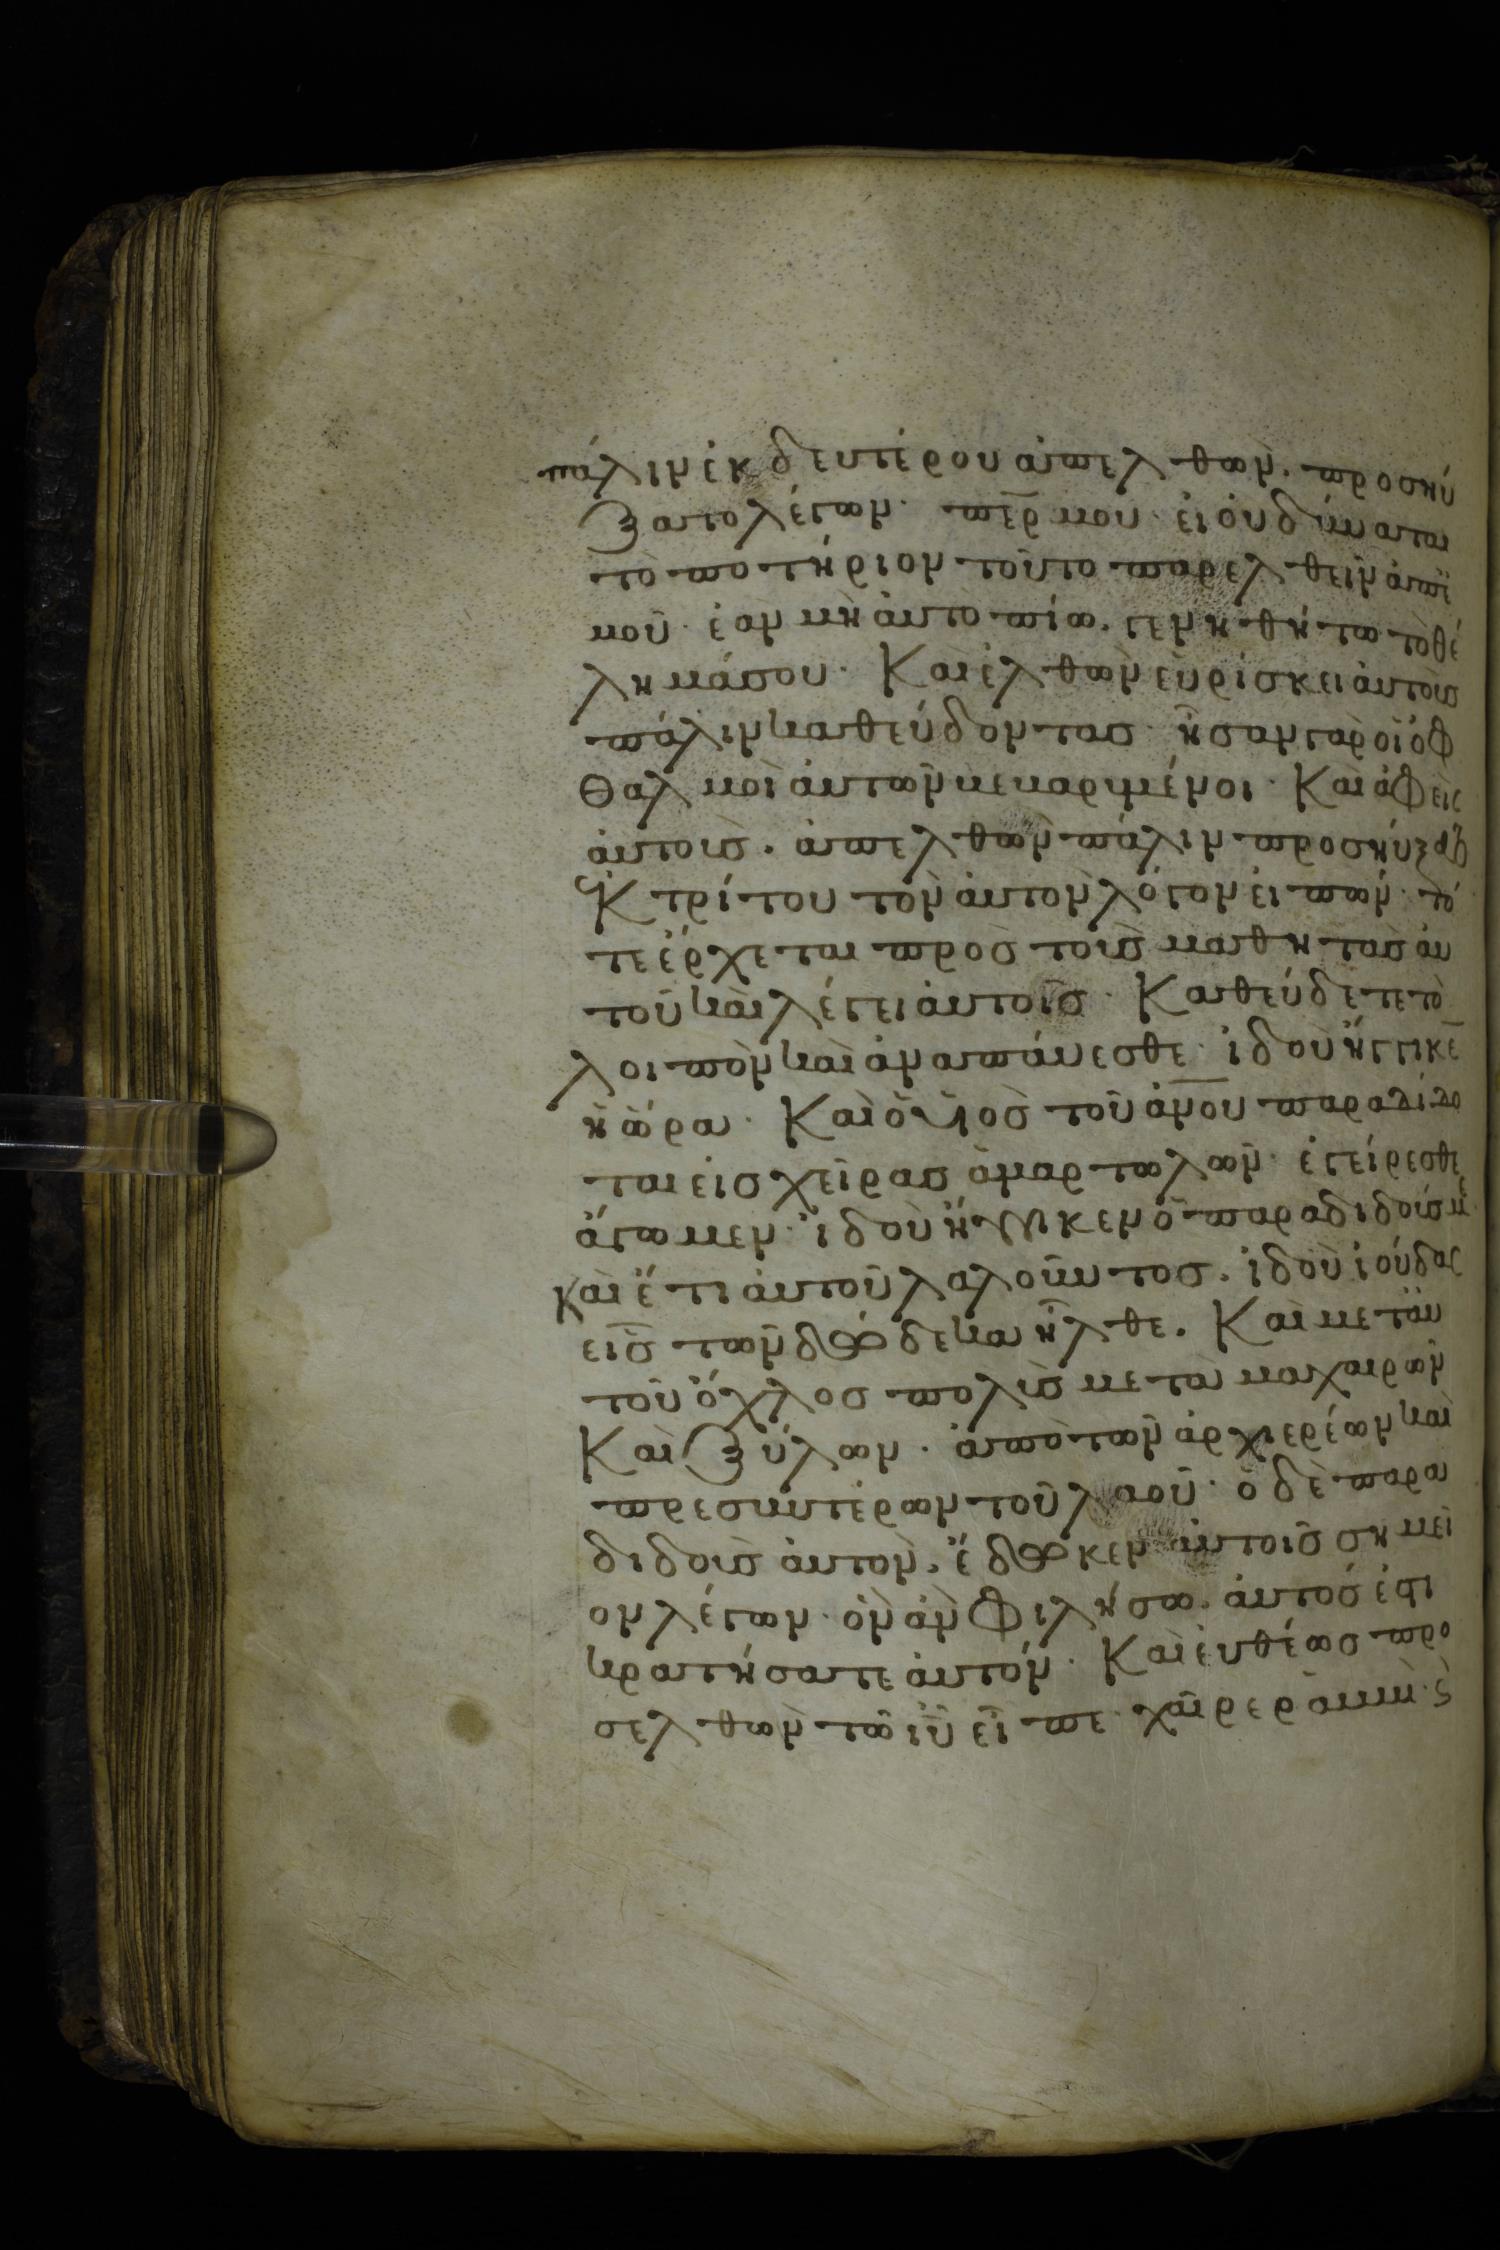 πάλιν ἐκ δευτέρου ἀπελθὼν. προσηύ
ξατο λέγων· περ μου· εἰ οὐ δύναται
τὸ ποτήριον τοῦτο παρελθεῖν ἀπ ἐ
μοῦ· ἐὰν μὴ αὐτὸ πίω. γενηθήτω τὸ θέ
λημά σου· Καὶ ἐλθὼν εὑρίσκει αὐτοὺσ
πάλιν καθεύδοντασ· ἦσαν γὰρ οἱ ὀφ
θαλμοὶ αὐτῶν βεβαρημένοι· Καὶ ἀφεὶς
αὐτοὺσ. ἀπελθὼν πάλιν προσηύξατο
ἐκ τρίτου τὸν αὐτὸν λόγον εἰπών· τό
τε ἔρχεται πρὸσ τοὺσ μαθητὰσ αὐ
τοῦ καὶ λέγει αὐτοῖσ· Καθεύδετε τὸ
λοιπὸν καὶ ἀναπαύεσθε· ἰδοὺ ἤγγικεν
ἡ ὥρα· Καὶ ὁ υἱὸσ τοῦ ανου παραδίδο
ται εἰσ χεῖρασ ἁμαρτωλῶν· ἐγείρεσθε
ἄγωμεν· ἰδοὺ ἤγγικεν ὁ παραδιδούσ με
Καὶ ἔτι αὐτοῦ λαλοῦντοσ. ἰδοὺ ἰούδας
εἷσ τῶν δώδεκα ἦλθε. Καὶ μετ αὐ
τοῦ ὄχλοσ πολὺσ μετὰ μαχαιρῶν
Καὶ ξύλων. ἀπὸ τῶν ἀρχιερέων καὶ
πρεσβυτέρων τοῦ λαοῦ· ὁ δὲ παρα
διδοὺσ αὐτὸν. ἔδωκεν αὐτοῖσ σημεῖ
ον λέγων· ὃν ἂν φιλήσω. αὐτόσ ἐστι
κρατήσατε αὐτόν· Καὶ εὐθέωσ προ
σελθὼν τῶ ιυ εἶπε· χαῖρε ραββὶ· ϛ